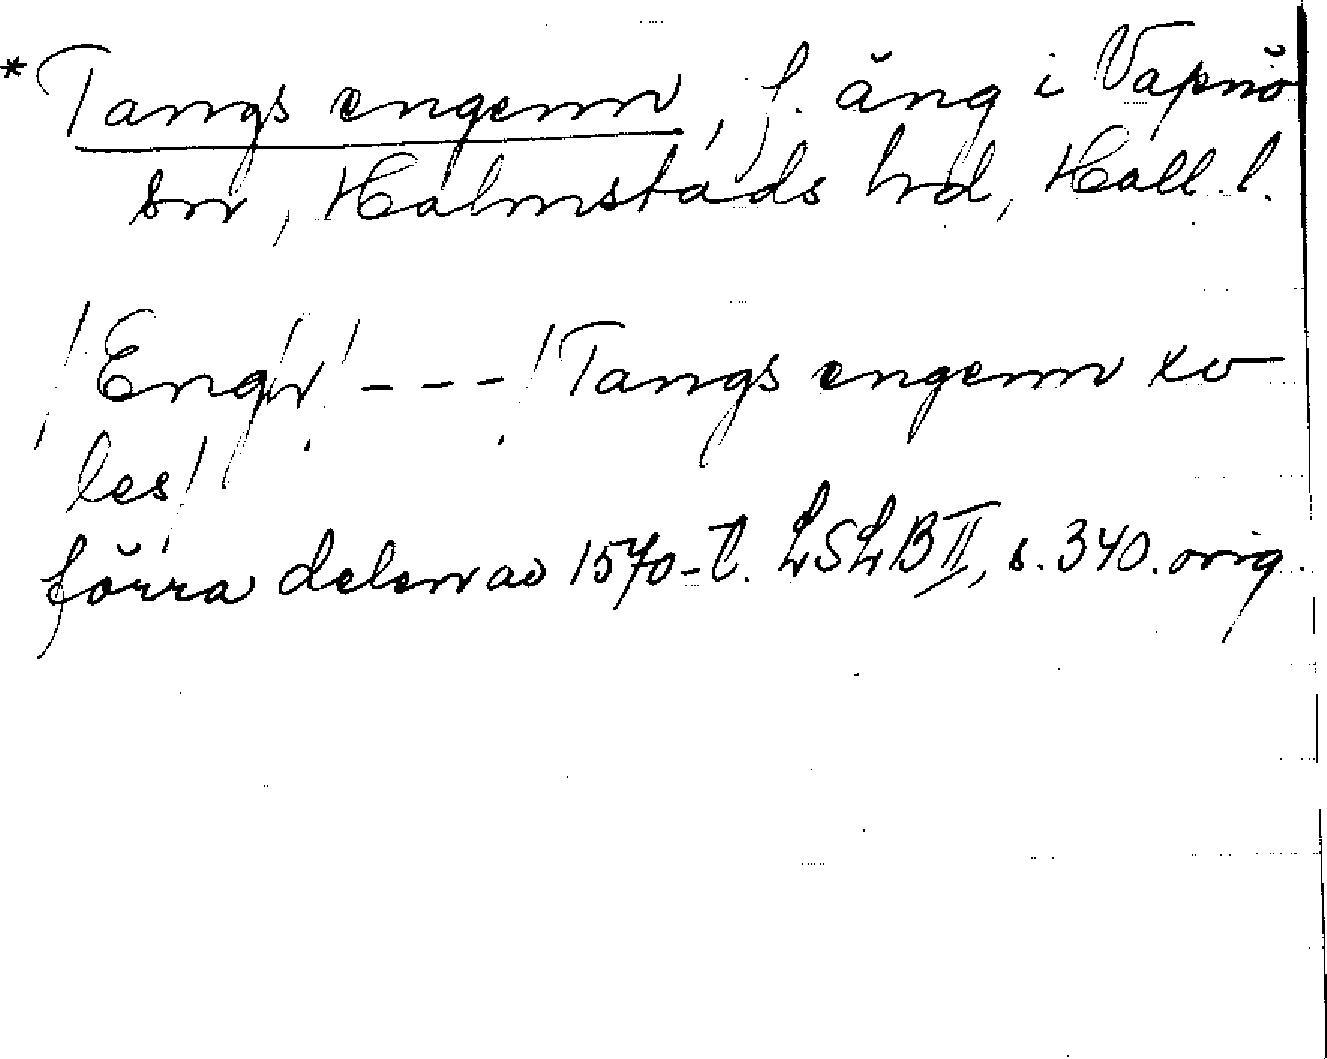 * Tangs engenn, f. äng i Vapnö
sn, Halmstads hd, Hall. l.
/Engn/ - - - /Tangs engenn xv
les/
förra delen av 1570-t. LSLB II, s. 340. orig.